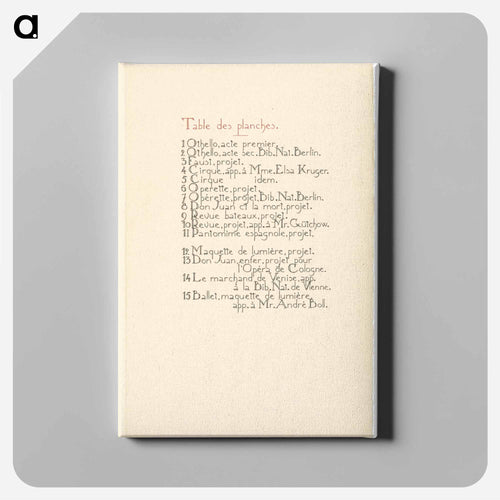 a
Table des planches.
1 Othello, acte premier.
2 Othello, acte sec. Bib. Nat. Berlin.
3 Faust, projet.
4 Cirque, app. à Mme. Elsa Kruger.
5 Cirque idem.
6 Operette, projet.
7 Opérette, projet, Bib. Nat. Berlin.
8 Don Juan et la mort, projet.
9 Revue bateaux, projet.
10 Revue, projet, app. à Mr. Gütchow.
11 Pantomime espagnole, projet.
12 Maquette de lumière, projet.
13 Don Juan, enfer, projet pour
l'Opéra de Cologne.
14 Le marchand de Venise, app.
à la Bib. Nat. de Vienne.
15 Ballet, maquette de lumière,
app. à Mr. André Boll.